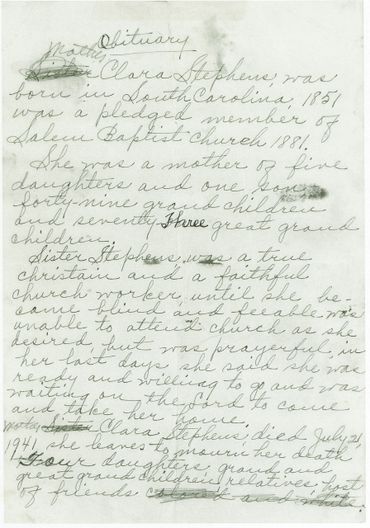 Obituary
Mother
Sister Clara Stephens, was
born in South Carolina, 1851
was a pledged member of
Salem Baptist Church 1881.
She was a mother of five
daughters and one son
forty-nine grand children
and seventy-three great grand
children.
Sister Stephens, was a true
christain and a faithful
church worker, until she be-
came blind and feeable was
unable to attend church as she
desired, but was prayerful, in
her last days, she said she was
ready and willing to go and was
waiting on the Lord to come
and take her home.
Mother Sister Clara Stephens, died July 21,
1941, she leaves to mourn her death
Four daughters, grand and
great grand children, relatives, host
of friends colored and white.